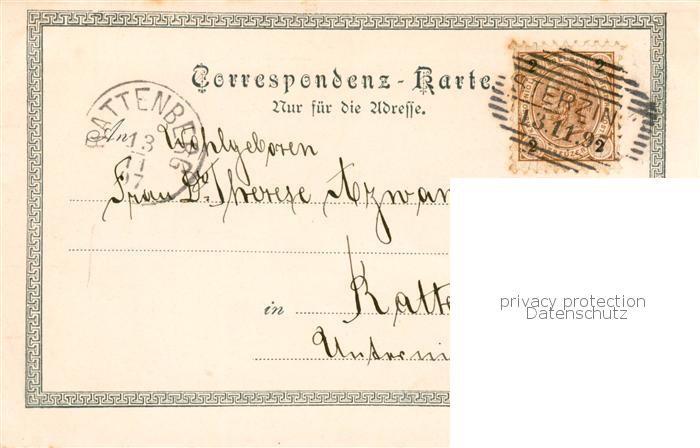 Correspondenz-Karte
Nur für die Adresse.
2 2
STERZIN
13.11.9
KREUZER
2 2
RATTENBERG
13
11
97
An Wohlgeboren
Frau Dr. Therese Azwan
in Ratte
Unterin
privacy protection
Datenschutz